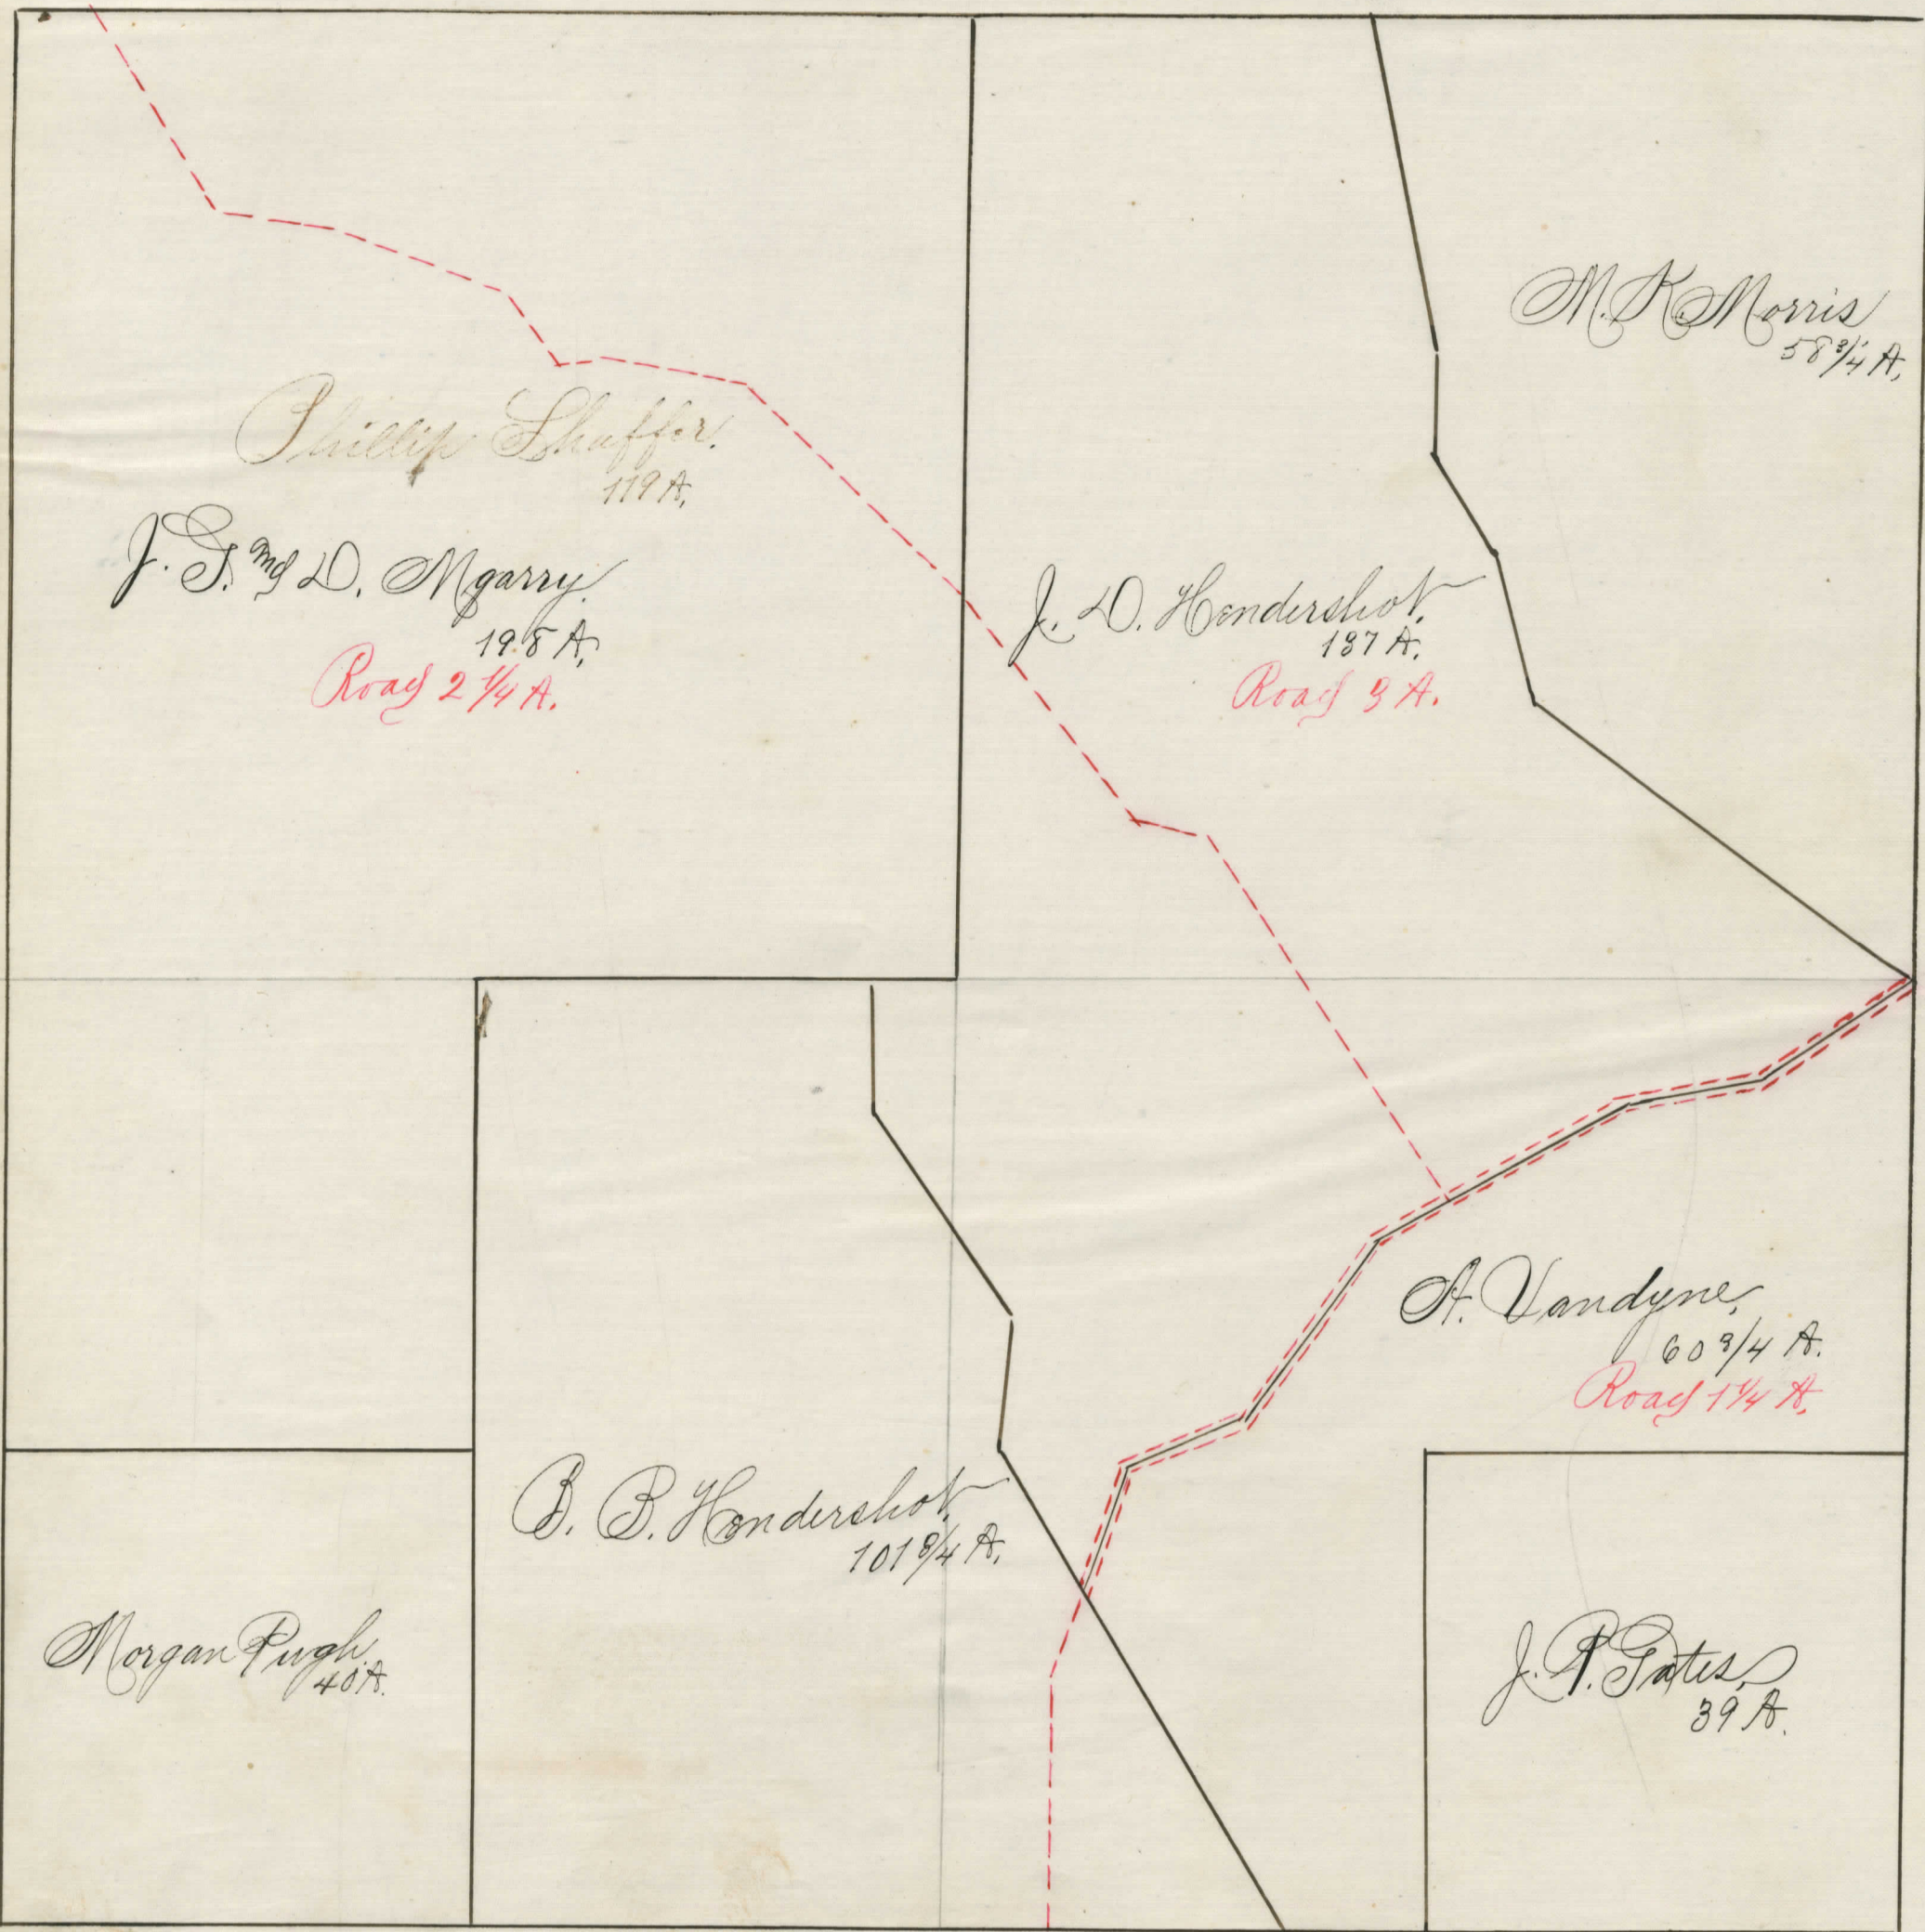 M. K. Morris
58 3/4 A.
Phillip Shaffer.
119 A.
J. D. Mgarry.
198 A.
Road 2 1/4 A.
J. D. Hendershot.
137 A.
Road 3 A.
A. Vandyne.
60 3/4 A.
Road 1 1/4 A.
B. B. Hendershot.
101 3/4 A.
Morgan Pugh.
40 A.
J. P. Gates.
39 A.